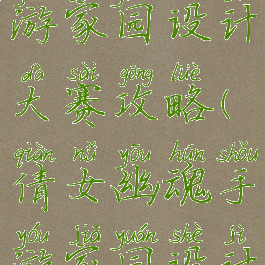 游家园设计
dà sài gōng lüè
大赛攻略(
qiàn nǚ yōu hún shǒu
倩女幽魂手
yóu jiā yuán shè jì
游家园设计